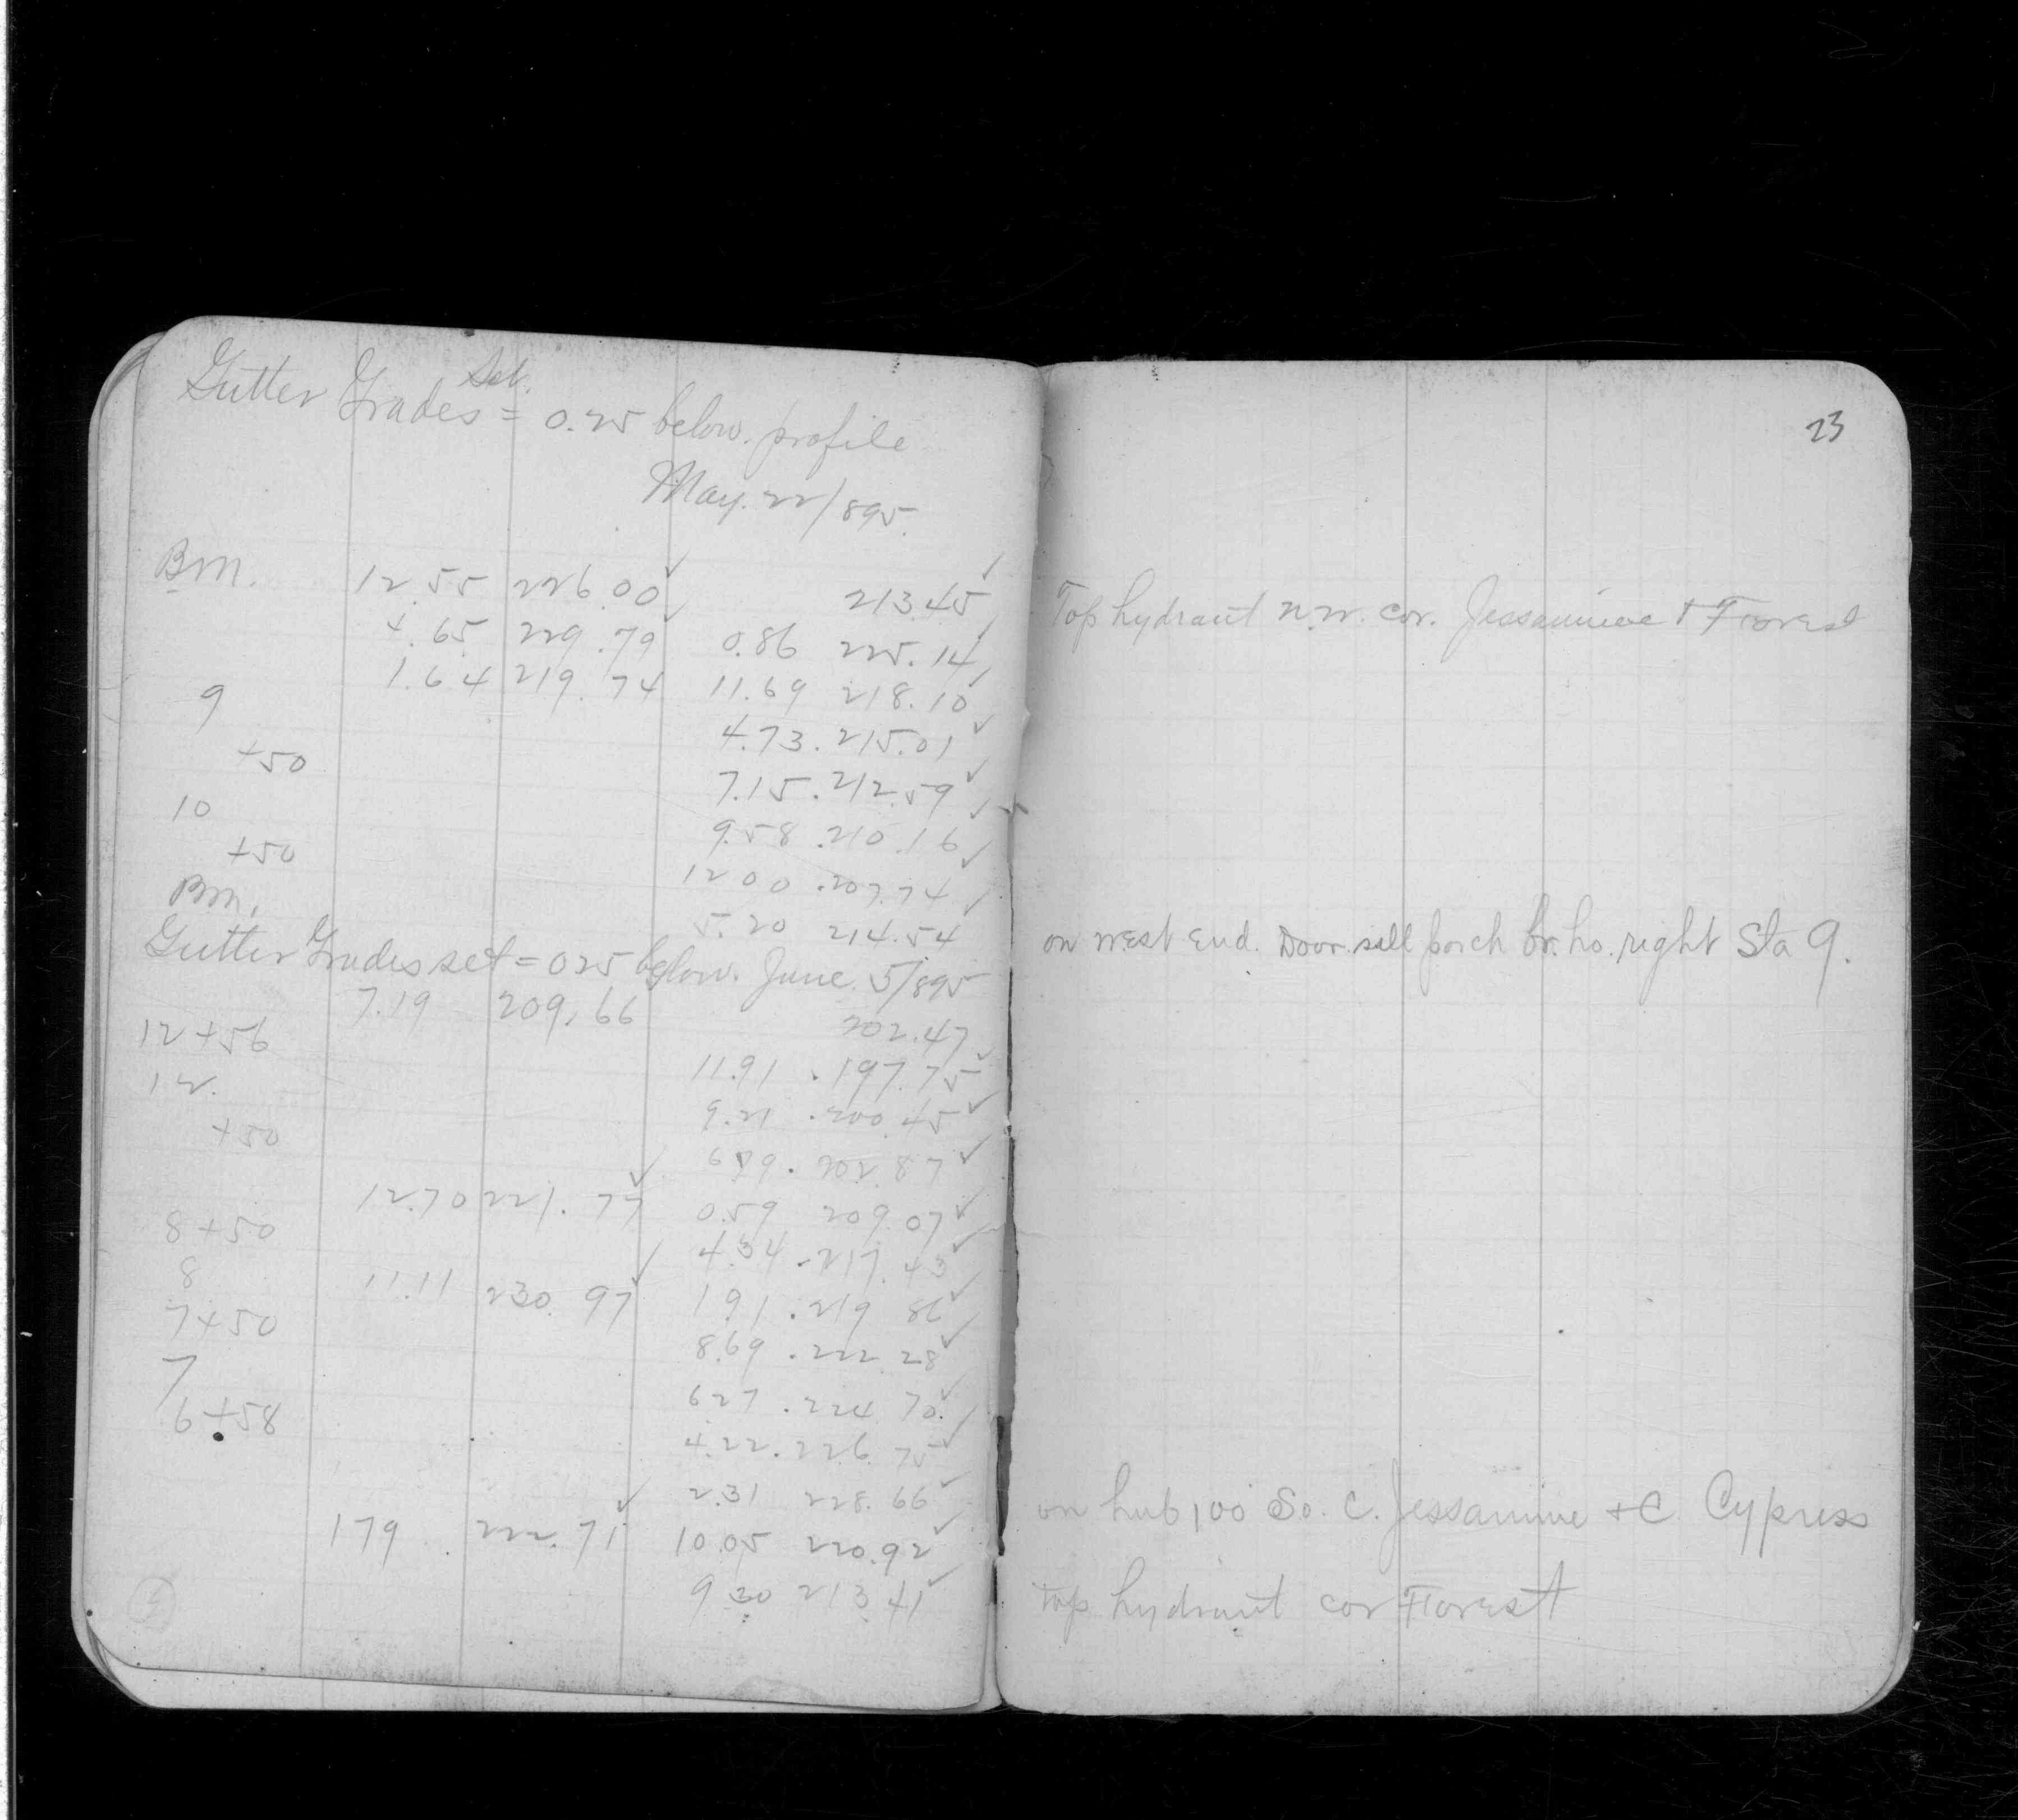 Gutter Grades Set. = 0.25 below. profile
May. 22/895.
23
BM. 12.55 226.00 ✓ 213.45 ✓ Top hydrant N.W. cor. Jessamine + Forest
4.65 229.79 ✓ 0.86 225.14 ✓
1.64 219.74 11.69 218.10 ✓
9 4.73 . 215.01 ✓
+50 7.15 . 212.59 ✓
10 9.58 . 210.16 ✓
+50 12 00 . 207.74 ✓
BM. 5.20 214.54 ✓ on west End. Door sill porch br. ho. right Sta 9.
Gutter Grades set = 025 below. June 5/895
7.19 209.66 202.47
12+56 11.91 . 197.75 ✓
12. 9.21 . 200.45 ✓
+50 6 79 . 202.87 ✓
12.70 221.77 ✓ 0.59 209.07 ✓
8+50 4.34 . 217.43 ✓
8 11.11 230.97 ✓ 1 91 . 219 86 ✓
7+50 8.69 . 222 28 ✓
7 6 27 . 224 70 ✓
6+58 4.22 . 226.75 ✓
2.31 228.66 ✓ on hub 100 So. C. Jessamine + C Cypress
1 79 222.71 ✓ 10.05 220.92 ✓
9 30 213 41 ✓ top hydrant cor Forest